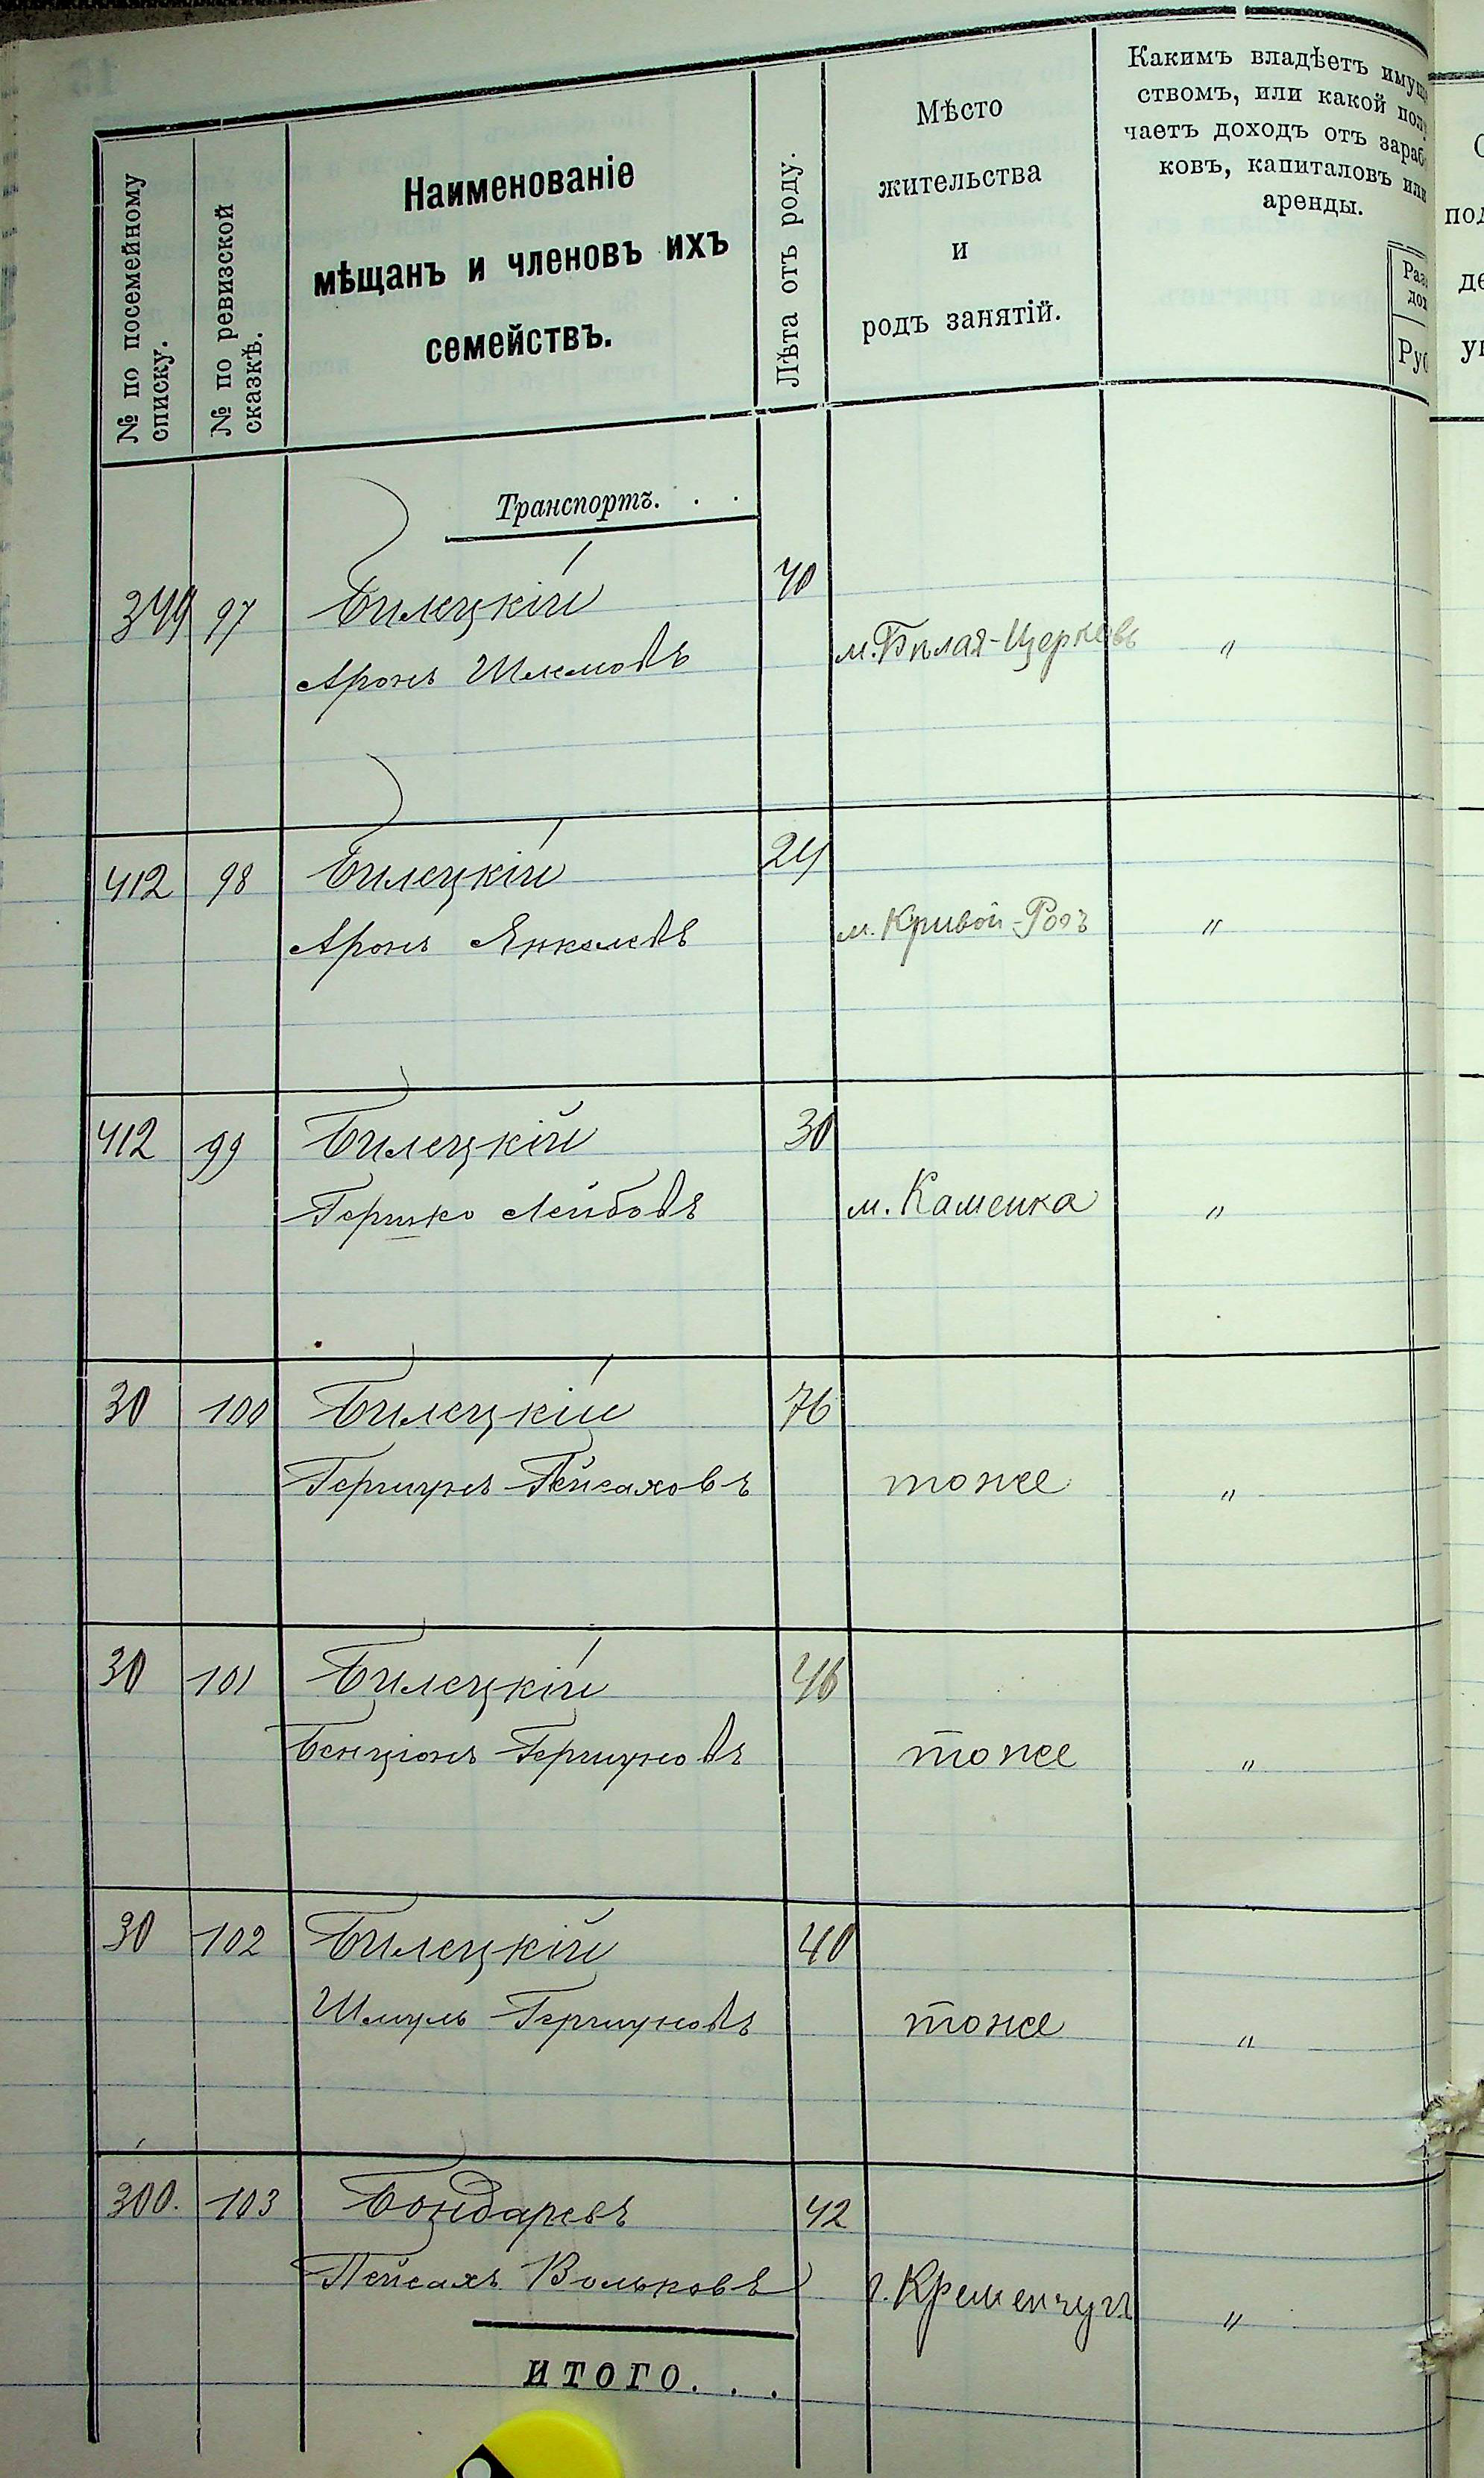 № по посемейному
списку.
№ по ревизской
сказкѣ.
Наименованіе
мѣщанъ и членовъ ихъ
семействъ.
Лѣта отъ роду.
Мѣсто
жительства
и
родъ занятій.
Какимъ владѣетъ имущ
ствомъ, или какой пол
чаетъ доходъ отъ зараб
ковъ, капиталовъ или
аренды.
Руб
Транспортъ. . .
349 97 Билецкій 40
Аронъ Шлемовъ м. Бѣлая-Церковь "
412 98 Билецкій 24
Аронъ Янкелевъ м. Кривой-Рогъ "
412 99 Билецкій 30
Гершко Лейбовъ м. Каменка "
30 100 Билецкій 76
Гершунъ Пейсаховъ тоже "
30 101 Билецкій 46
Бенціонъ Гершуновъ тоже "
30 102 Билецкій 40
Шмуль Гершуновъ тоже "
300. 103 Бондаревъ 42
Пейсахъ Вольковъ г. Кременчугъ "
итого. . .